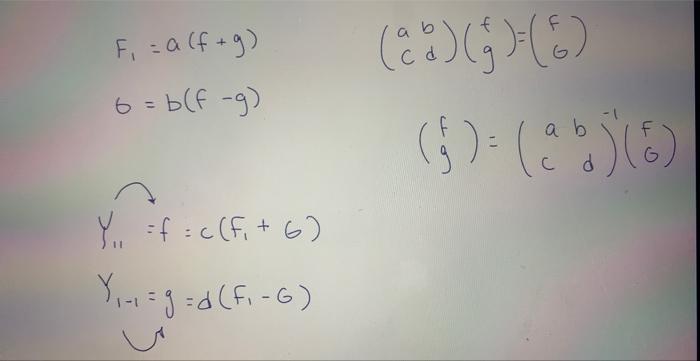 F₁ = a(f + g)
G = b(f - g)
(a b
c d)(f
g) = (F
G)
(f
g) = (a b
c d)⁻¹(F
G)
Y₁₁ = f = c(F₁ + G)
Y₁₋₁ = g = d(F₁ - G)